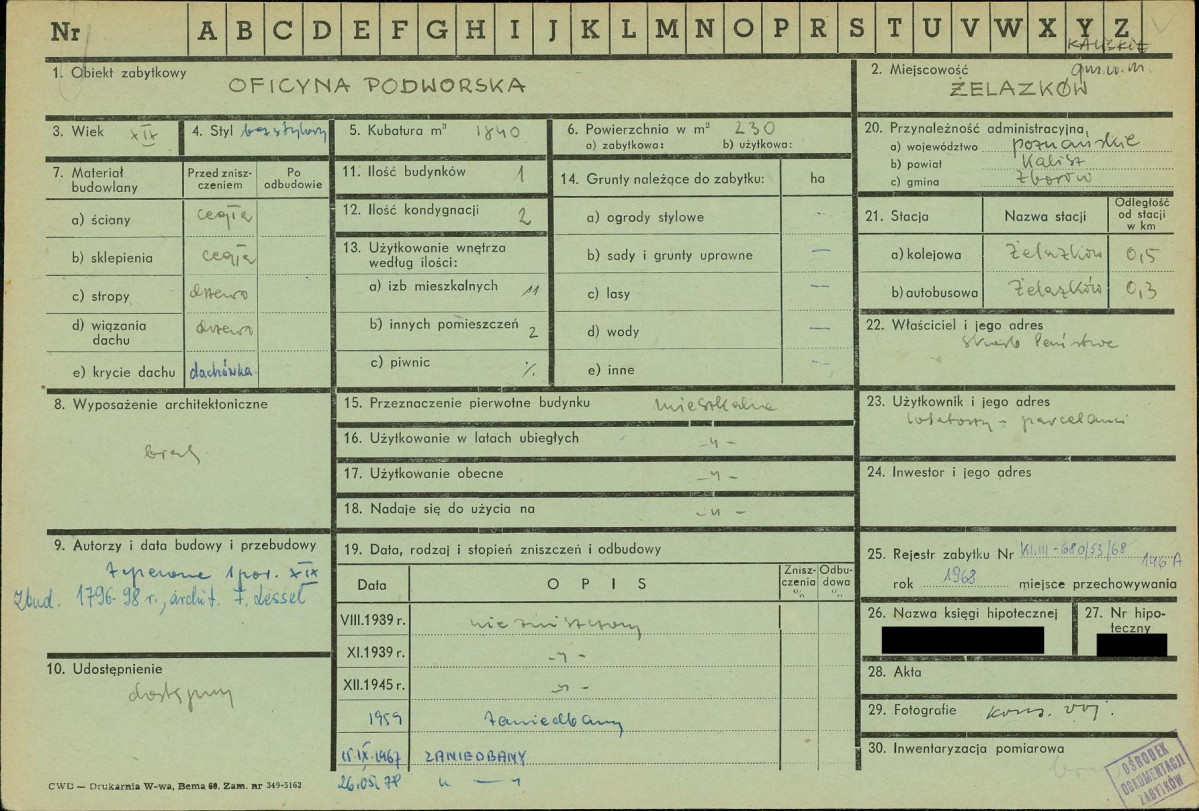 Nr A B C D E F G H I J K L M N O P R S T U V W X Y Z
KALISKIE
gm. w. m.
1. Obiekt zabytkowy
OFICYNA PODWORSKA
2. Miejscowość
ŻELAZKÓW
3. Wiek XIX
4. Styl bezstylowy
5. Kubatura m³ 1840
6. Powierzchnia w m² 230
a) zabytkowa: b) użytkowa:
20. Przynależność administracyjna,
a) województwo poznańskie
b) powiat Kalisz
c) gmina Zborów
7. Materiał budowlany
Przed zniszczeniem
Po odbudowie
a) ściany cegła
b) sklepienia cegła
c) stropy drzewo
d) wiązania dachu drzewo
e) krycie dachu dachówka
11. Ilość budynków 1
12. Ilość kondygnacji 2
13. Użytkowanie wnętrza
według ilości:
a) izb mieszkalnych 11
b) innych pomieszczeń 2
c) piwnic %
14. Grunty należące do zabytku: ha
a) ogrody stylowe -
b) sady i grunty uprawne —
c) lasy —
d) wody —
e) inne -
21. Stacja Nazwa stacji Odległość od stacji w km
a) kolejowa Żelazków 0,5
b) autobusowa Żelazków 0,3
22. Właściciel i jego adres
Skarb Państwa
8. Wyposażenie architektoniczne
brak
15. Przeznaczenie pierwotne budynku mieszkalne
16. Użytkowanie w latach ubiegłych -"-
17. Użytkowanie obecne -"-
18. Nadaje się do użycia na -"-
23. Użytkownik i jego adres
lokatorzy - parcelanci
24. Inwestor i jego adres
9. Autorzy i data budowy i przebudowy
1 poł. XIX
Zbud. 1796-98 r., archit. F. Lessel
19. Data, rodzaj i stopień zniszczeń i odbudowy
Data OPIS Zniszczenia % Odbudowa %
VIII.1939 r. niezniszczony
XI.1939 r. -"-
XII.1945 r. -"-
1959 Zaniedbany
15.IX.1967 ZANIEDBANY
26.05.78 " — "
25. Rejestr zabytku Nr Kl.III-680/53/68
146 A
rok 1968 miejsce przechowywania
26. Nazwa księgi hipotecznej
27. Nr hipoteczny
10. Udostępnienie
dostępny
28. Akta
29. Fotografie kons. woj.
30. Inwentaryzacja pomiarowa
OŚRODEK
DOKUMENTACJI
ZABYTKÓW
CWD — Drukarnia W-wa, Bema 60. Zam. nr 349-5162